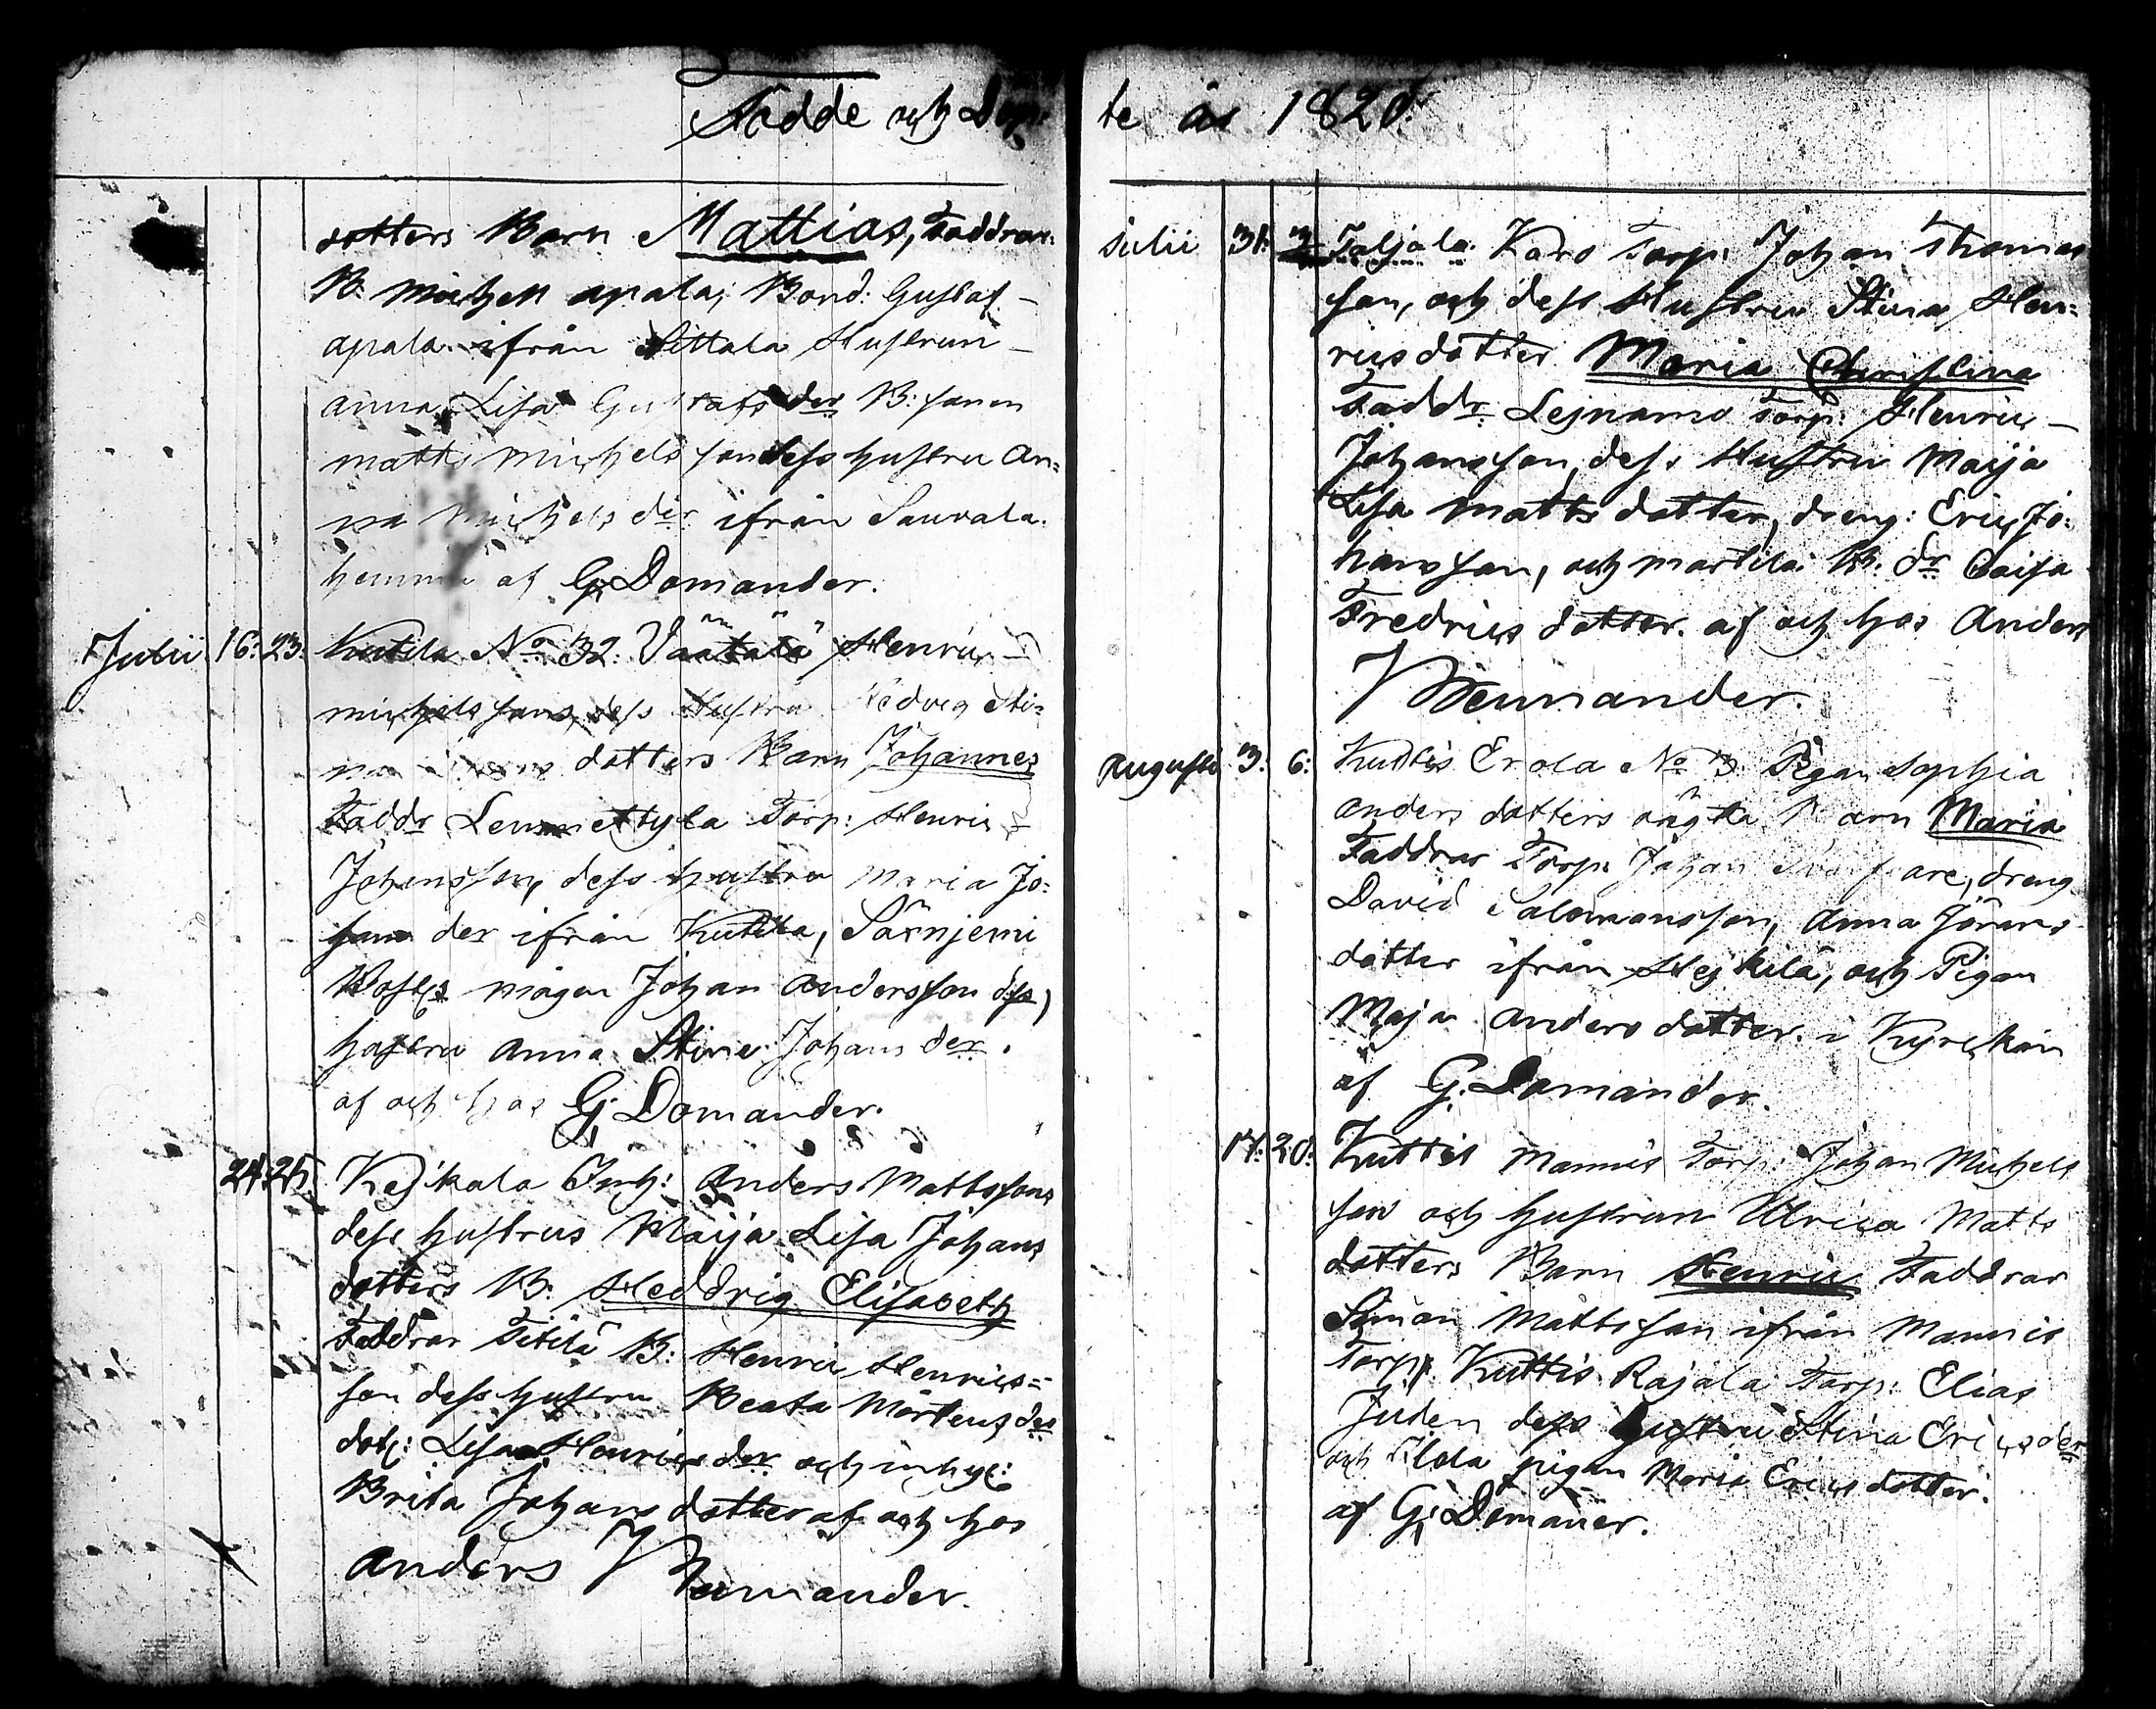 Födde och Döp:
dotters Barn Mattias, Faddrar:
B. Michell apala; Bond: Gustaf
apala ifrån Sittala Hustrun
anna Lisa Gustafs der B: sonen
matts Michels son dess hustru An=
na Michels der ifrån Sauvala.
af G: Domander.
Julii 16: 23: Kutila No 32. Väätälä Henric
michels sons, dess Hustru Hedvig Sti=
na dotters Barn Johannes
Faddr Lemmettyla Torp: Henric
Johansson, dess hustru Maria Jo=
hans der ifrån Kuttila, Särnjemi
mågen Johan Andersson dess
hustru Anna Stina Johans der.
af och hos G: Domander.
24: 25. Kejkala Inh: Anders Mattssons
dess hustrus Maija Lisa Johans
dotters B: Heddvig Elisabeth
Faddrar Titilä B: Henric Henrics=
son dess hustru Beata Mårtens der
dot: Lisa Henrics der och inhys:
Brita Johans dotter af och hos
anders Wenmander.
te år 1820.
Julii 31: Taljala Karo Torp: Johan Thomas
son, och dess Hustru Stina Hen=
rics dotter Maria Christina
Faddr: Lejnamo Torp: Henric
Johansson, dess Hustru Maija
Lisa Matts dotter, dreng: Eric Jo=
hansson, och martila B. dr Caisa
Fredrics dotter. af och hos Anders
Wenmander.
Augusti 3: 6: Kuttis Erola No 3 Pigan Sophia
anders dotters oägta Barn Maria
Faddrar Torp: Johan are, dreng
David Salomonsson, Anna Jörans
dotter ifrån Hejkilä, och Pigan
Maja anders dotter. i Kyrckan
af G: Domander.
17: 20: Kuttis Mannis Torp: Johan Michels
son och hustrun Ulrica Matts
dotters Barn Henric Faddrar
Simon Mattsson ifrån Mannis
Torp, Kuttis Rajala Torp: Elias
Juden dess hustru Stina Erics der
och pigan Maria Erics dotter.
af G: Domaner.